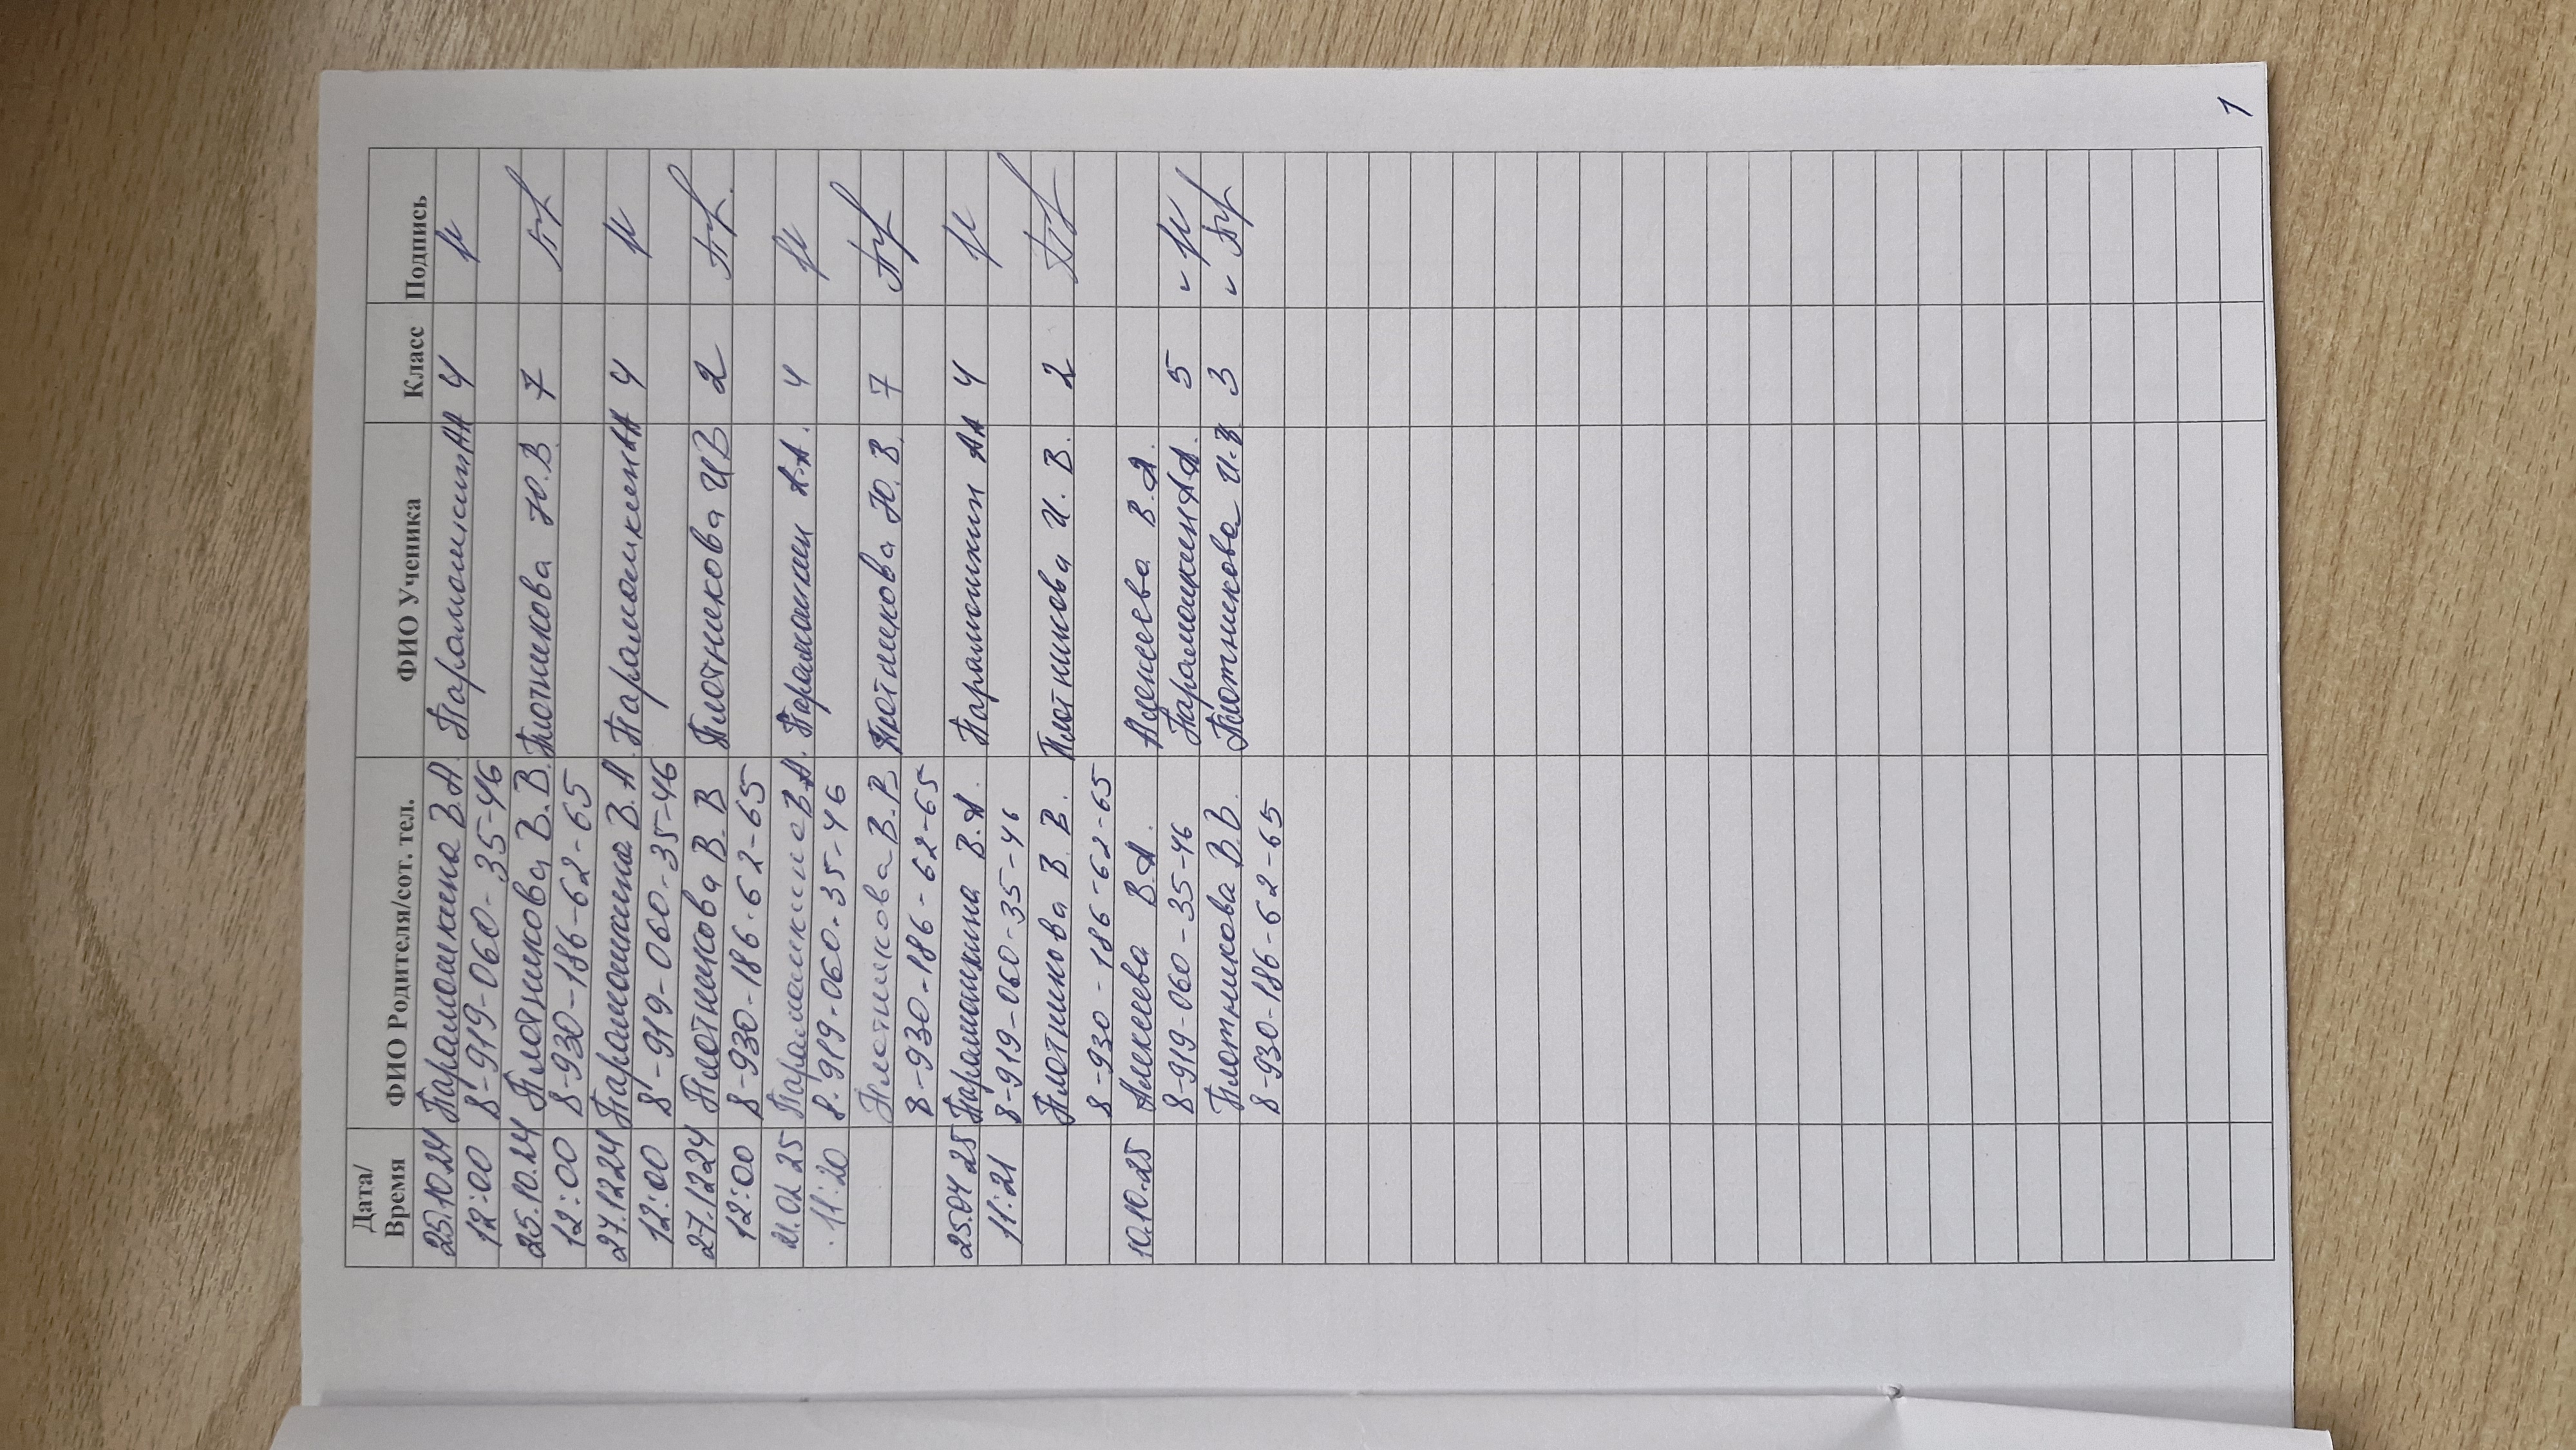 Дата/ Время ФИО Родителя/сот. тел. ФИО Ученика Класс Подпись
25.10.24 Парамошкина В.А. Парамошкин АА 4
12:00 8-919-060-35-46
25.10.24 Плотникова В.В. Плотникова Ю.В. 7
12:00 8-930-186-62-65
27.12.24 Парамошкина В.А. Парамошкин АА 4
12:00 8-919-060-35-46
27.12.24 Плотникова В.В Плотникова И В 2
12:00 8-930-186-62-65
21.02.25 Парамошкина В.А. Парамошкин А.А.  4
11:20 8-919-060-35-46
Плотникова В.В Плотникова Ю.В. 7
8-930-186-62-65
25.04.25 Парамошкина В.А. Парамошкин АА 4
11:21 8-919-060-35-46
Плотникова В.В. Плотникова И.В. 2
8-930-186-62-65
10.10.25 Алексеева В.А. Алексеева В.А.
8-919-060-35-46 Парамошкин А.А. 5
Плотникова В.В. Плотникова И.В 3
8-930-186-62-65
1